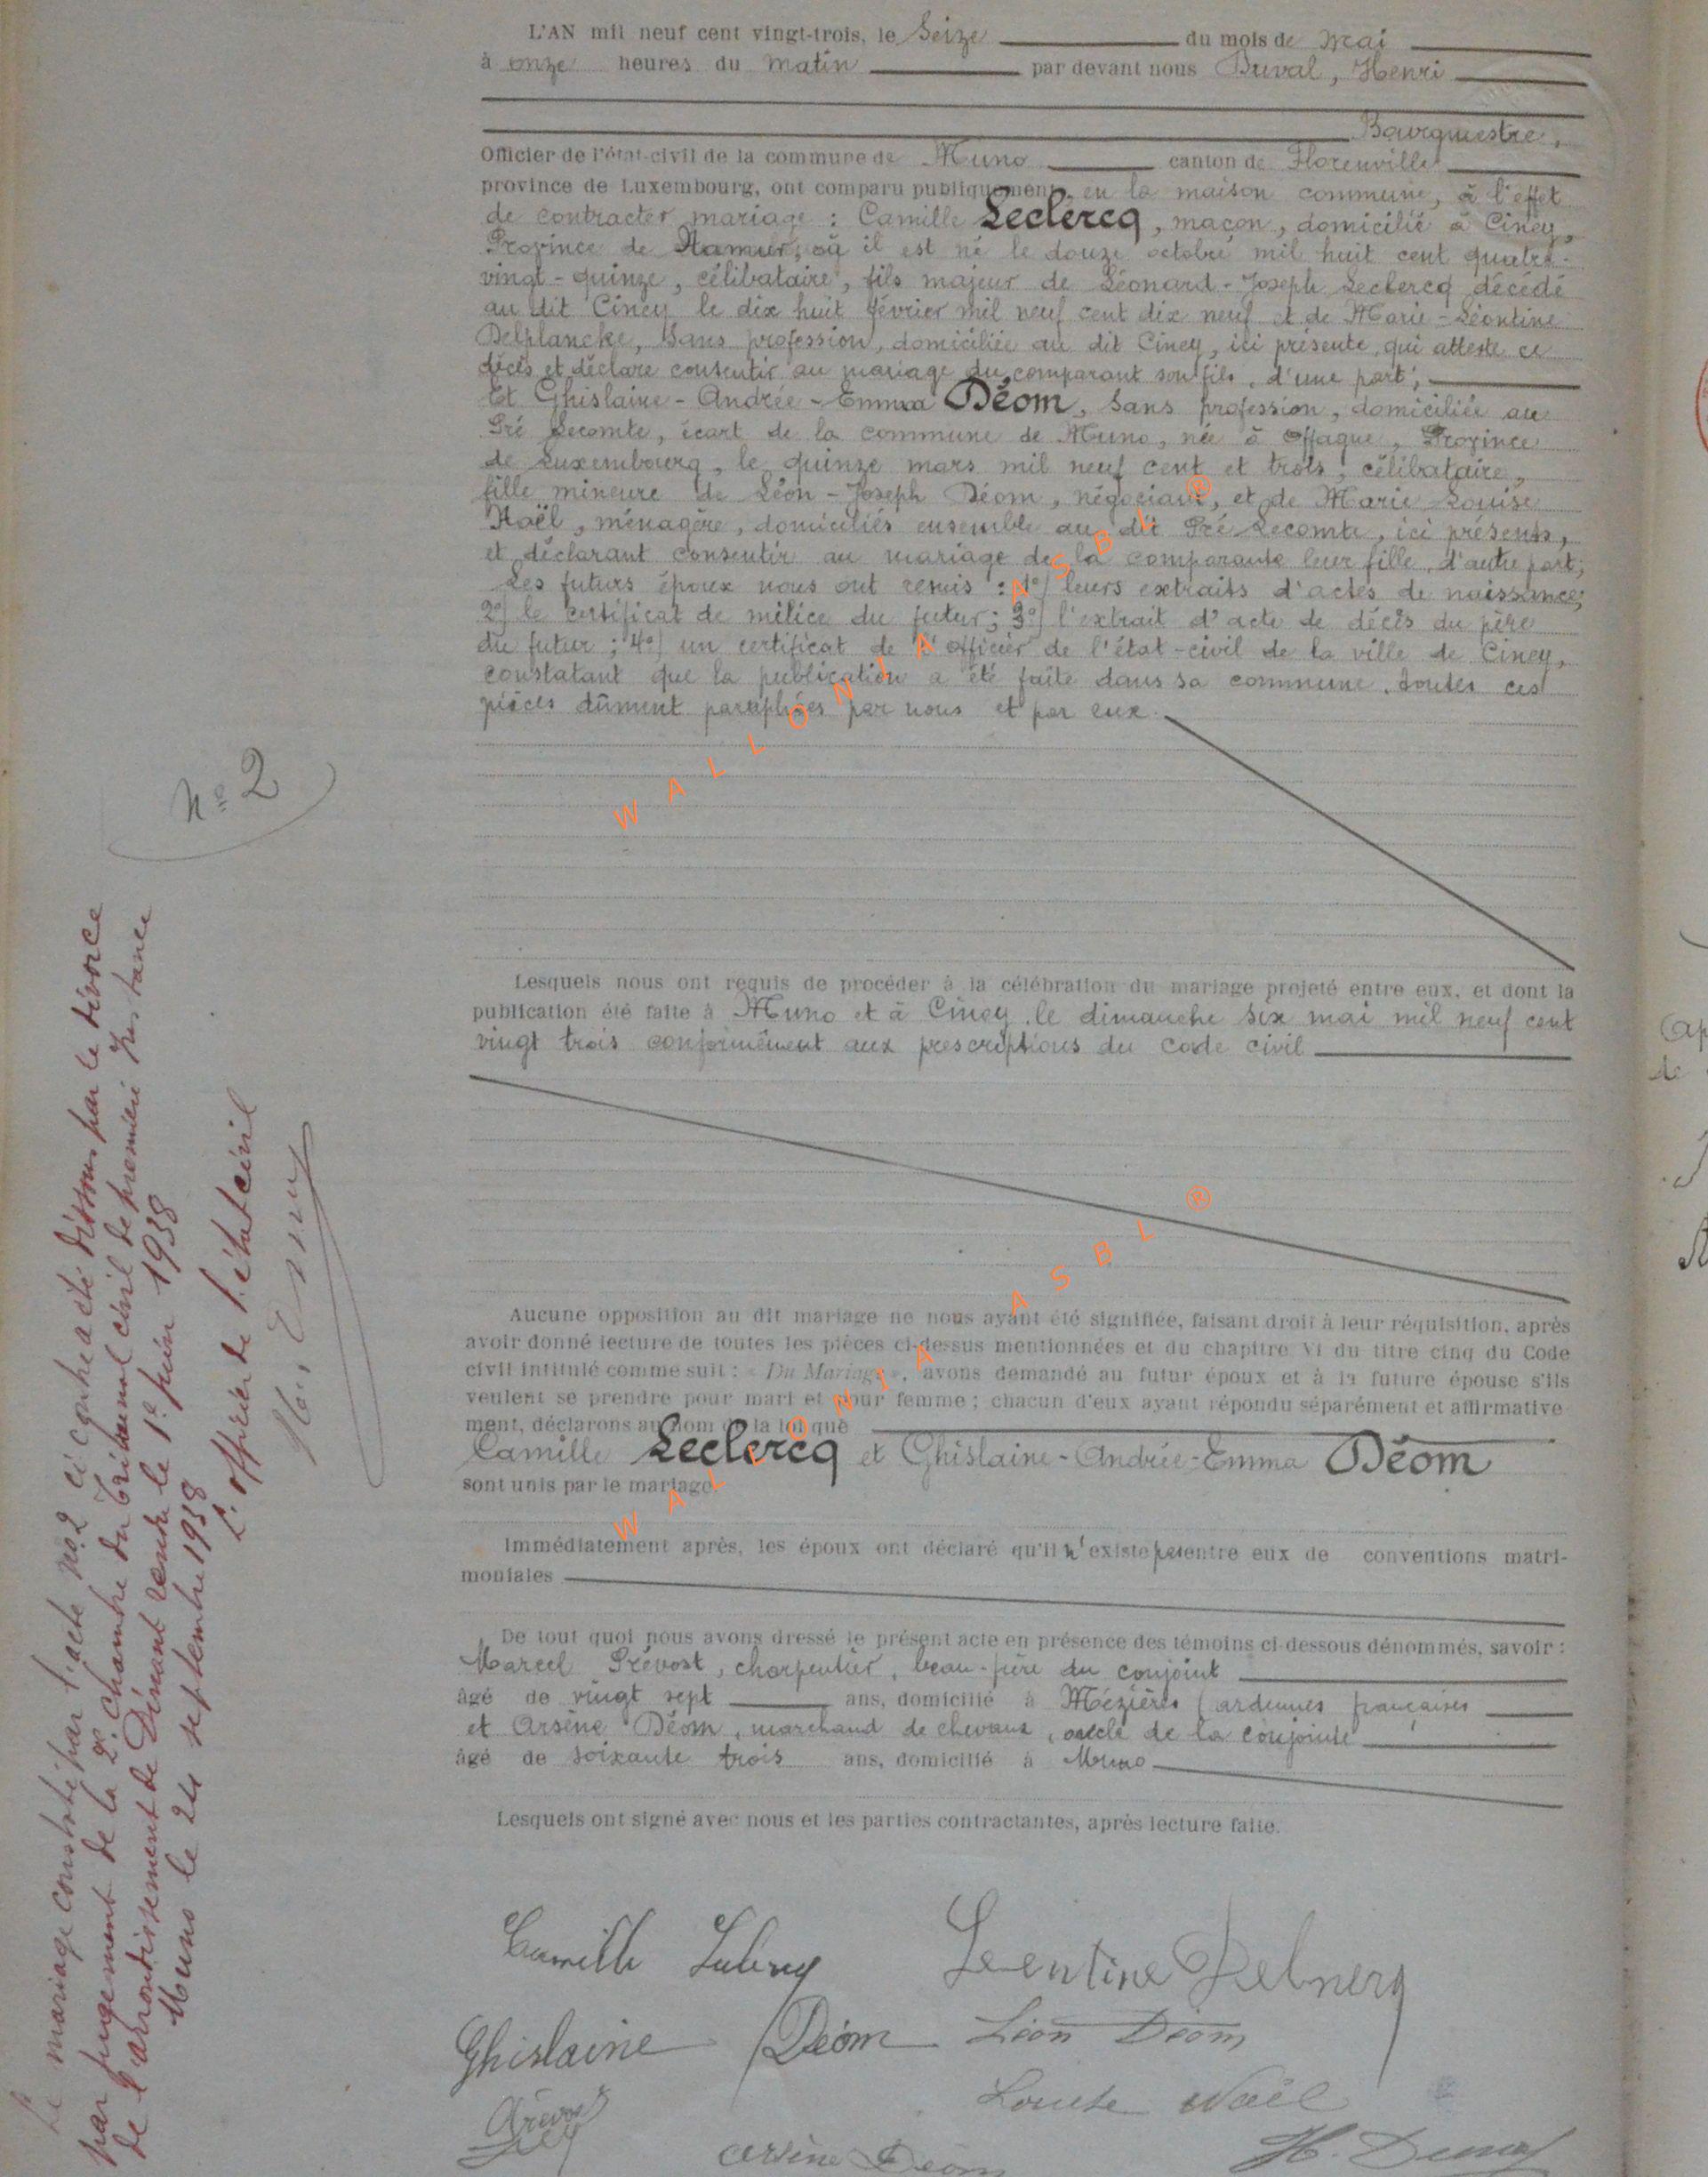 L'AN mil neuf cent vingt-trois, le Seize du mois de Mai
à onze heures du matin par devant nous Duval, Henri
Bourgmestre,
Officier de l'état-civil de la commune de Muno canton de Florenville
province de Luxembourg, ont comparu publiquement, en la maison commune, à l'effet
de contracter mariage : Camille Leclercq, maçon, domicilié à Ciney,
Province de Namur, où il est né le douze octobre mil huit cent quatre-
vingt-quinze, célibataire, fils majeur de Léonard-Joseph Leclercq décédé
au dit Ciney le dix huit février mil neuf cent dix neuf et de Marie-Léontine
Delplancke, sans profession, domiciliée au dit Ciney, ici présente, qui atteste ce
décès et déclare consentir au mariage du comparant son fils, d'une part ;
Et Ghislaine-Andrée-Emma Déom, sans profession, domiciliée au
Pré Lecomte, écart de la commune de Muno, née à Offagne, Province
de Luxembourg, le quinze mars mil neuf cent et trois, célibataire,
fille mineure de Léon-Joseph Déom, négociant, et de Marie Louise
Noël, ménagère, domiciliés ensemble au dit Pré Lecomte, ici présents,
et déclarant consentir au mariage de la comparante leur fille, d'autre part ;
Les futurs époux nous ont remis : 1°) leurs extraits d'actes de naissance ;
2°) le certificat de milice du futur ; 3°) l'extrait d'acte de décès du père
du futur ; 4°) un certificat de l'officier de l'état-civil de la ville de Ciney,
constatant que la publication a été faite dans sa commune. toutes ces
pièces dûment paraphées par nous et par eux.
Nº 2
Lesquels nous ont requis de procéder à la célébration du mariage projeté entre eux, et dont la
publication été faite à Muno et à Ciney, le dimanche six mai mil neuf cent
vingt trois conformément aux prescriptions du code civil
Aucune opposition au dit mariage ne nous ayant été signifiée, faisant droit à leur réquisition, après
avoir donné lecture de toutes les pièces ci-dessus mentionnées et du chapitre VI du titre cinq du Code
civil intitulé comme suit : « Du Mariage », avons demandé au futur époux et à la future épouse s'ils
veulent se prendre pour mari et pour femme ; chacun d'eux ayant répondu séparément et affirmative-
ment, déclarons au nom de la loi que
Camille Leclercq et Ghislaine-Andrée-Emma Déom
sont unis par le mariage.
Immédiatement après, les époux ont déclaré qu'il n'existe pas entre eux de conventions matri-
moniales
De tout quoi nous avons dressé le présent acte en présence des témoins ci-dessous dénommés, savoir :
Marcel Prévost, charpentier, beau-frère du conjoint
âgé de vingt sept ans, domicilié à Mézières (ardennes françaises
et Arsène Déom, marchand de chevaux, oncle de la conjointe
âgé de soixante trois ans, domicilié à Muno
Lesquels ont signé avec nous et les parties contractantes, après lecture faite.
Camille Leclercq Léontine
Ghislaine Déom Léon Déom
Louise Noël
Arsène Déom H. Duval
Le mariage constaté par l'acte No 2 ci contre a été dissous par le divorce
par jugement de la 2e chambre du tribunal civil de premièr Instance
de l'arrondissement de Dinant rendu le 1er juin 1938
Muno le 24 septembre 1938
L'officier de l'état civil
WALLONIA ASBL ®
WALLONIA ASBL ®